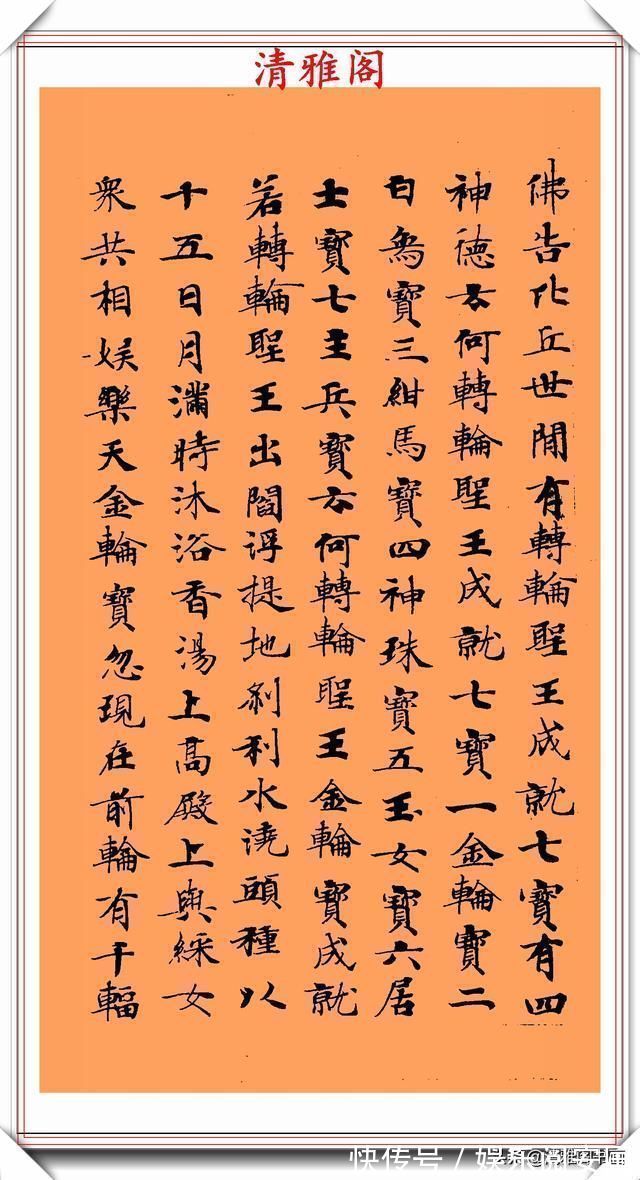 清雅阁
佛告比丘世間有轉輪聖王成就七寶有四
神德云何轉輪聖王成就七寶一金輪寶二
白象寶三紺馬寶四神珠寶五玉女寶六居
士寶七主兵寶云何轉輪聖王金輪寶成就
若轉輪聖王出閻浮提地剎利水澆頭種以
十五日月滿時沐浴香湯上高殿上與綵女
衆共相娛樂天金輪寶忽現在前輪有千輻
快传号 /